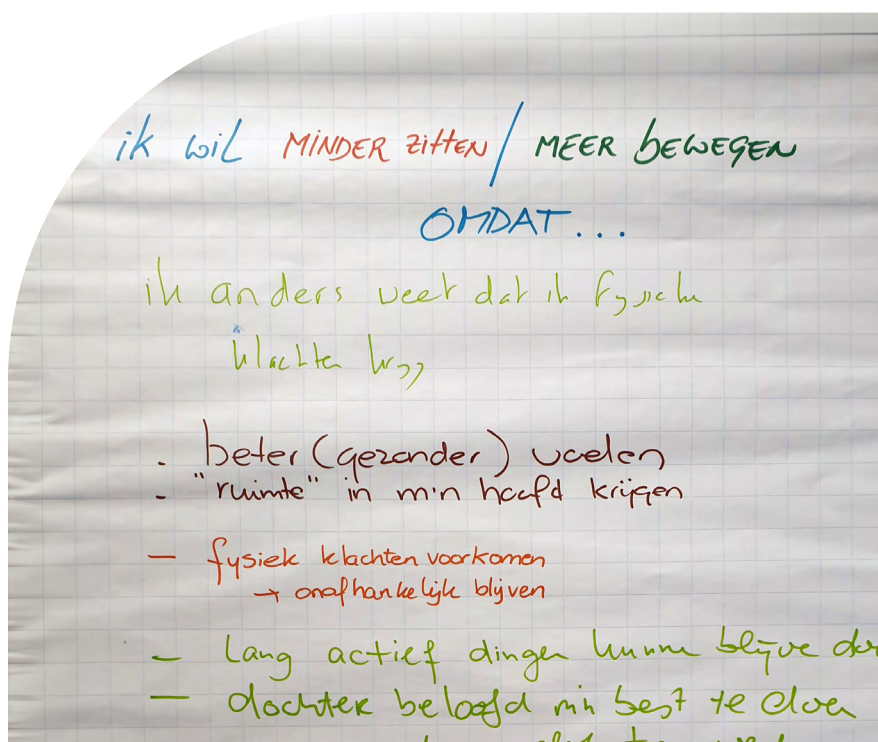 ik wil MINDER zitten / MEER bewegen
OMDAT...
ik anders weet dat ik fysieke
klachten krijg
. beter (gezonder) voelen
- "ruimte" in m'n hoofd krijgen
- fysiek klachten voorkomen
→ onafhankelijk blijven
- Lang actief dingen kunnen blijve
- dochter beloofd m'n best te doen